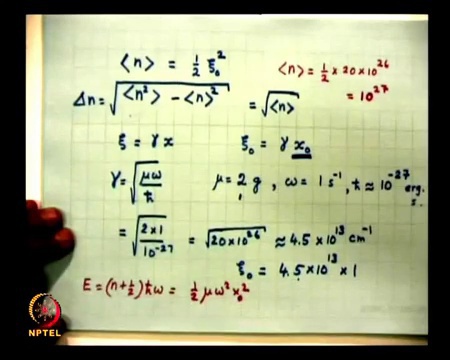 ⟨n⟩ = 1/2 ξ₀²
⟨n⟩ = 1/2 × 20 × 10²⁶
= 10²⁷
Δn = √(⟨n²⟩ − ⟨n⟩²) = √⟨n⟩
ξ = γx    ξ₀ = γ x₀
γ = √(μω/ħ)    μ = 2 g, ω = 1 s⁻¹, ħ ≈ 10⁻²⁷ erg. s.
= √(2×1/10⁻²⁷) = √(20×10²⁶) ≈ 4.5 × 10¹³ cm⁻¹
ξ₀ = 4.5 × 10¹³ × 1
E = (n+1/2)ħω = 1/2 μω² x₀²
NPTEL